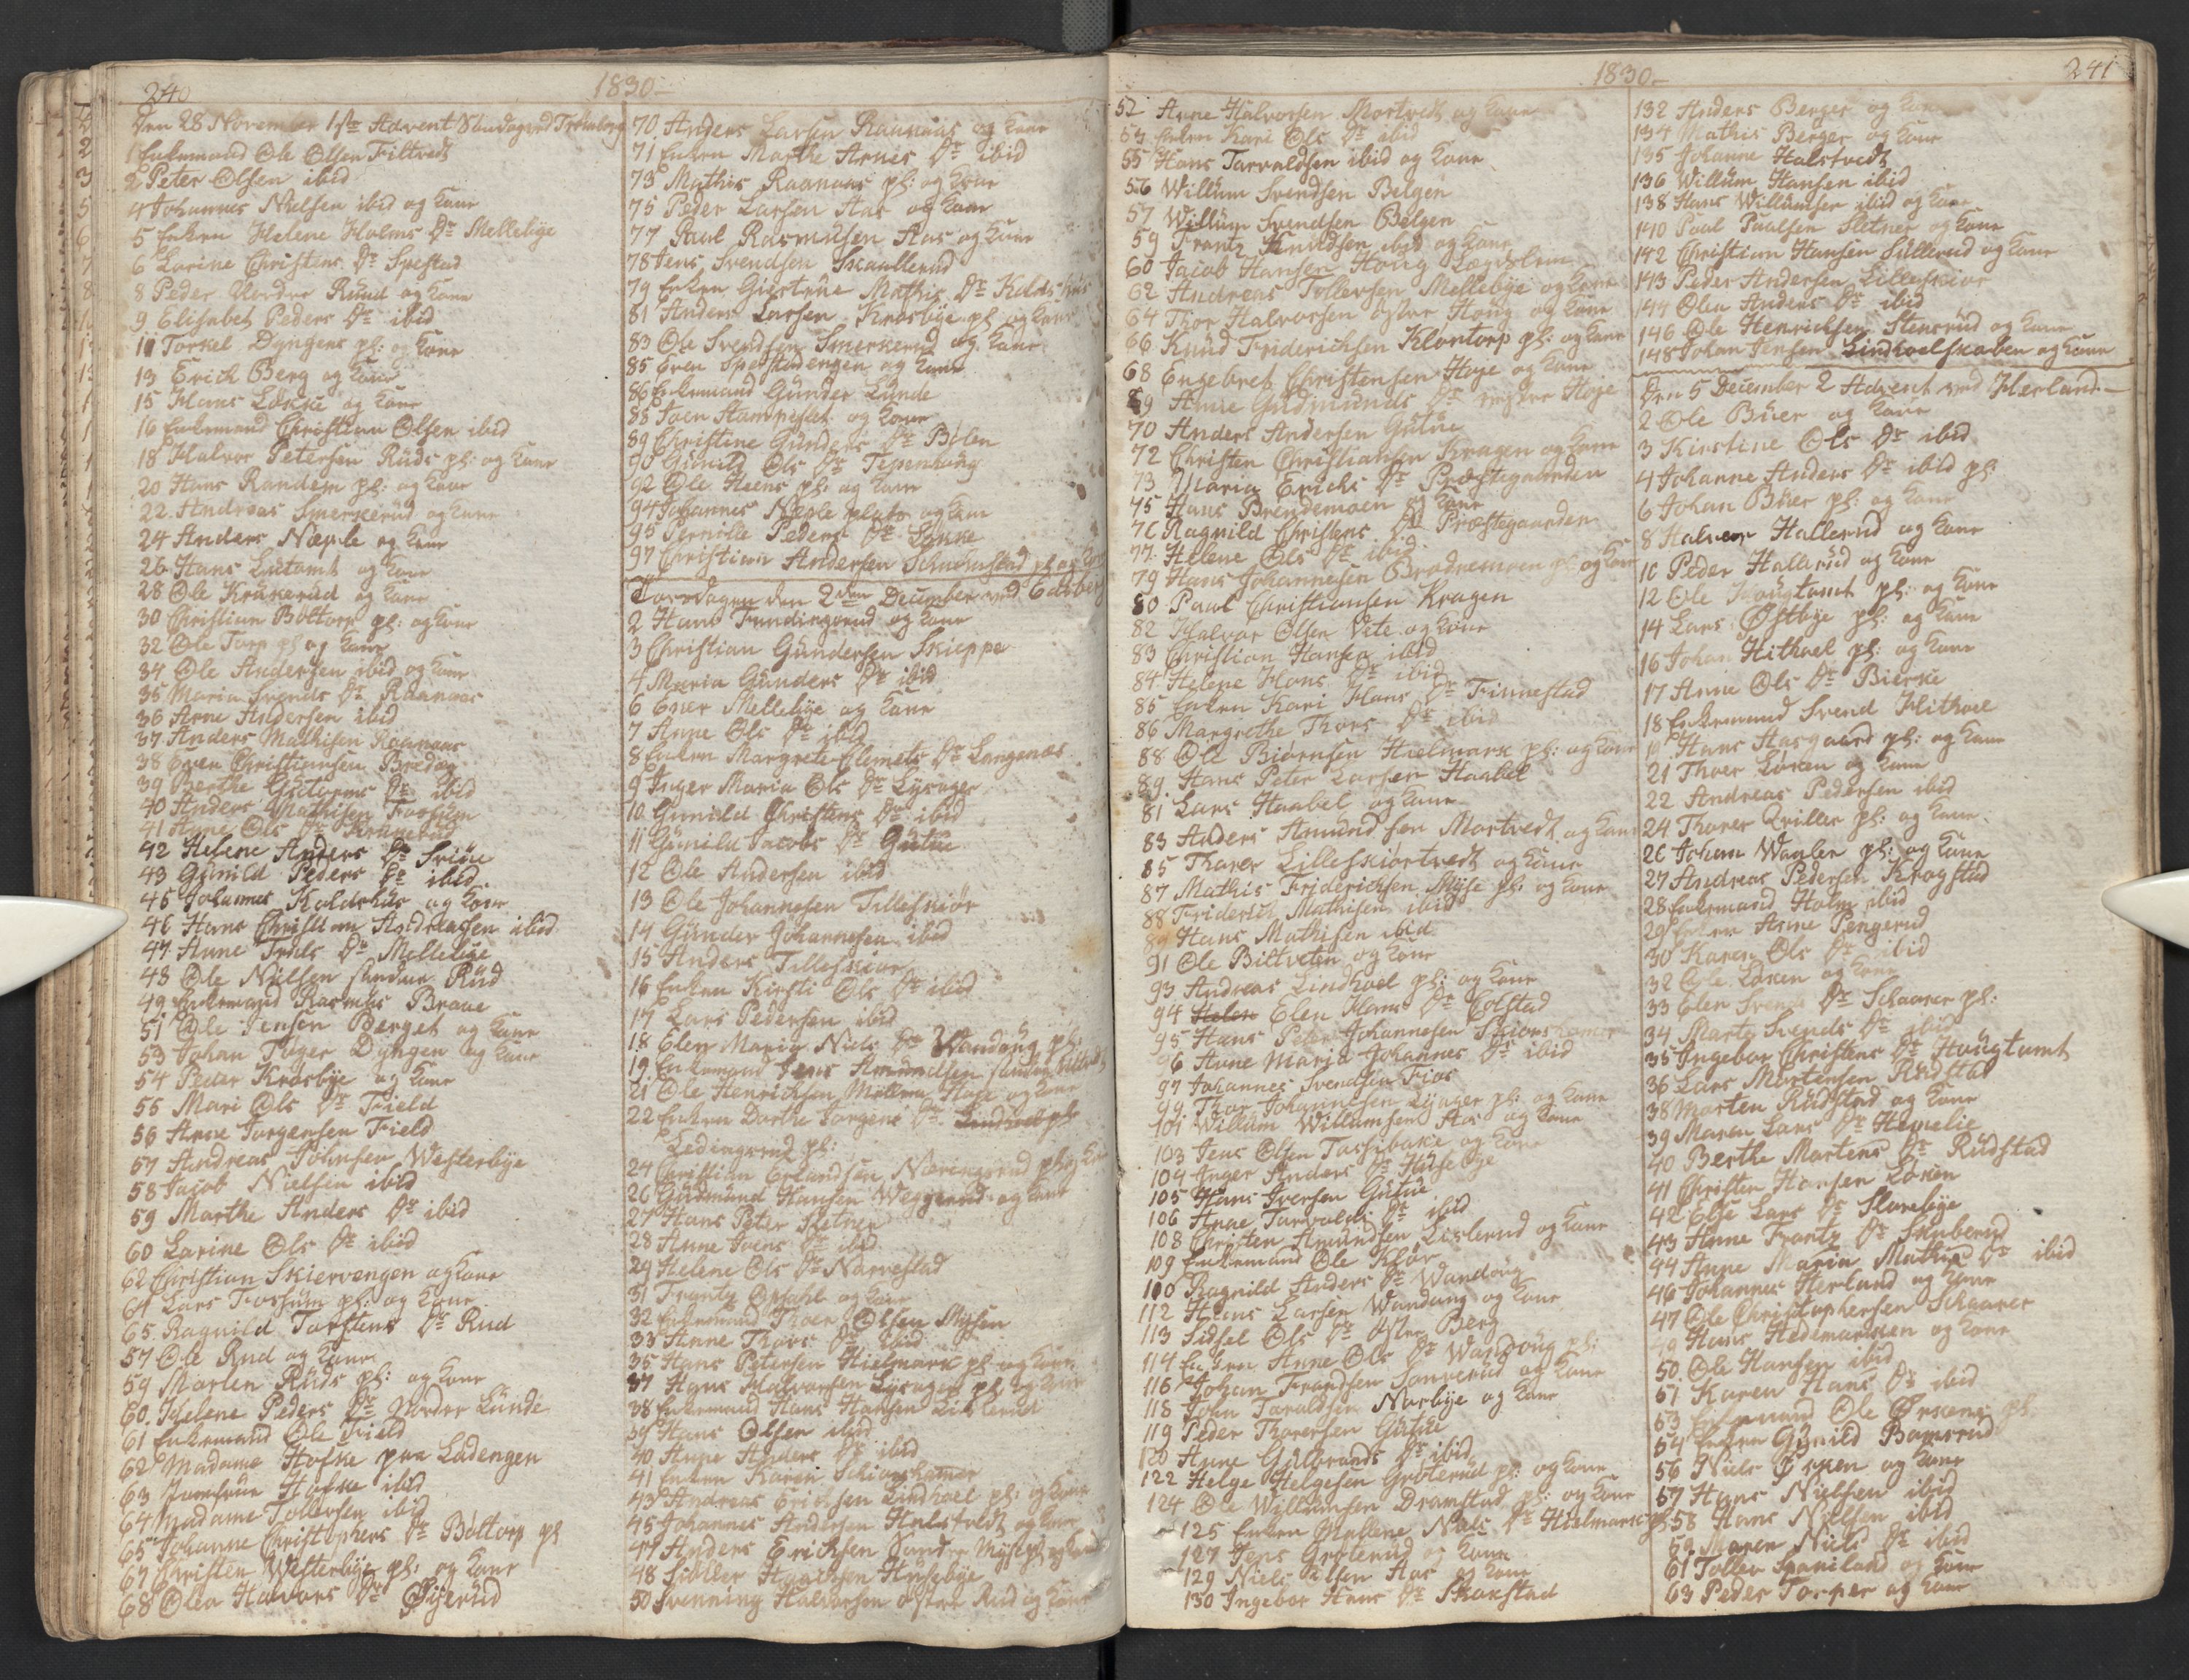 240
1830
Den 28 November 1ste Advent Søndag ved Trømborg
1 Enkemand Ole Olsen Filtvedt
2 Peter Olsen ibid
4 Johannes Nielsen ibid og Kone
5 Enken Helene Holms Dr Mellebye
6 Larine Christens Dr Spestad
8 Peder Nordre Rüud og Kone
9 Elisabet Peders Dr ibid
11 Torkel Dyngens pl: og Kone
13 Erich Berg og Kone
15 Hans Løkke og Kone
16 Enkemand Christian Olsen ibid
18 Halvor Petersen Rüds pl: og Kone
20 Hans Randem pl: og Kone
22 Andreas Smerkerüd og Kone
24 Anders Næple og Kone
26 Hans Lutomt og Kone
28 Ole Krükerüd og Kone
30 Christian Boltorp pl: og Kone
32 Ole Torp pl og Kone
34 Ole Andersen ibid og Kone
35 Maria Svends Dr Raanaas
36 Arne Andersen ibid
37 Anders Mathisen Raanaas
38 Even Christiansen Bredag
39 Berthe Guttorms Dr ibid
40 Anders Mathisen Fossum
41 Anne Ols Dr Krükerüd
42 Helene Anders Dr Friüe
43 Günild Peders Dr ibid
45 Johannes Koldshüs og Kone
46 Hans Christian Andreasen ibid
47 Anne Truls Dr Mellebye
48 Ole Nielsen søndre Rüd
49 Enkemand Rasmus Braae
51 Ole Jensen Berget og Kone
53 Johan Tüger Dyngen og Kone
54 Peder Krosbye og Kone
55 Mari Ols Dr Field
56 Arne Jørgensen Field
57 Andreas Johnsen Westerbye
58 Jacob Nielsen ibid
59 Marthe Anders Dr ibid
60 Larine Ols Dr ibid
62 Christian Skiervengen og Kone
64 Lars Fossum pl: og Kone
65 Ragnild Torstens Dr Rud
57 Ole Rud og Kone
59 Morten Rüds pl: og Kone
60 Helene Peders Dr Nordre Lünde
61 Enkemand Ole Field
62 Madame Hofke paa Ladengen
63 Jomfrue Hofke ibid
64 Madame Tollersen ibid
65 Johanne Christophers Dr Boltorp pl
67 Christen Westerbye pl: og Kone
68 Olea Halvors Dr Øyerüd
70 Anders Larsen Raanaas og Kone
71 Enken Marthe Arnes Dr ibid
73 Mathis Raanaas pl: og Kone
75 Peder Larsen Aas og Kone
77 Paul Rasmusen Aas og Kone
78 Jens Svendsen Skaullerud
79 Enken Giertrüe Mathis Dr Koldshüs
81 Anders Larsen Krosbye pl og Kone
83 Ole Svendsen Smerkerud og Kone
85 Even Spestadengen og Kone
86 Enkemand Günder Lünde
88 Søen Handrestet og Kone
89 Christine Günders Dr Bølen
90 Günild Ols Dr Tipenhaug
92 Ole Heens pl: og Kone
94 Johannes Næple plads og Kone
95 Pernille Peders Dr Løkke
97 Christian Andersen Skükestad pl og Kone
Torsdagen den 2den December ved Edsberg
2 Hans Frudingsrud og Kone
3 Christian Gündersen Skieppe
4 Maria Günders Dr ibid
6 Ener Mellebye og Kone
7 Anne Ols Dr ibid
8 Enken Margrete Clemets Dr Langenæs
9 Inger Maria Ols Dr Lysager
10 Gunild Christens Dr ibid
11 Günild Jacobs Dr Gütue
12 Ole Andersen ibid
13 Ole Johannesen Tilleskiør
14 Günder Johannesen ibid
15 Anders Tilleskior
16 Enken Kirsti Ols Dr ibid
17 Lars Pedersen ibid
18 Elen Maria Niels Dr Wandoug pl:
19 Enkemand Jens Amundsen
21 Ole Henrichsen Mellem Hoje og Kone
22 Enken Dorthe Jørgens Dr Lindhoel pl
Ledingsrud pl:
24 Christian Erlandsen Næringsrud pl og Kone
26 Gudmund Hansen Weggerud og Kone
27 Hans Peter Sletner
28 Anne Joens Dr ibid
29 Helene Ols Dr Narvestad
31 Frantz Opsahl og Kone
32 Enkemand Thoer Olsen Mysen
33 Anne Thors Dr ibid
35 Hans Petersen Hielmark pl og Kone
37 Hans Halvorsen Lysager pl og Kone
38 Enkemand Hans Hansen Lislerud
39 Hans Olsen ibid
40 Anne Anders Dr ibid
41 Enken Karen Schionhamer
43 Andreas Erichsen Lindhoel pl: og Kone
45 Johannes Andersen Halstvedt og Kone
47 Anders Erichsen Søndre Myse pl og Kone
48 Siøller Haachsen Hüsebye
50 Svenning Halvorsen østre Rud og Kone
1830
241
52 Arne Halvorsen Mortvedt og Kone
53 Enken Kari Ols Dr ibid
55 Hans Tarvaldsen ibid og Kone
56 Willüm Svendsen Belgen
57 Willüm Svendsen Belgen
59 Frantz Knudsen ibid og Kone
60 Jacob Hansen Houg Lægdslem
62 Andreas Tollersen Mellebye og Kone
64 Thor Halvorsen øster Houg og Kone
66 Knüd Friderichsen Klontorp pl: og Kone
68 Engebret Christensen Hoje og Kone
69 Anne Gudmunds Dr vestre Hoje
70 Anders Andersen Gütue
72 Christen Christiansen Kragen og Kone
73 Maria Erichs Dr Præstegaarden
75 Hans Brendemoen og Kone
76 Ragnild Christens Dr Præstegaarden
77 Helene Ols Dr ibid
79 Hans Johannesen Brødremoen pl og Kone
80 Paul Christiansen Kragen
82 Halvor Olsen Vete og Kone
83 Christian Hansen ibid
84 Helene Hans Dr ibid
85 Enken Kari Hans Dr Finnestad
86 Margrethe Thors Dr ibid
88 Ole Biørnsen Hielmark pl: og Kone
89 Hans Peter Larsen Haabel
81 Lars Haabel og Kone
83 Anders Amundsen Mortvedt og Kone
85 Thorer Lilleskiortvedt og Kone
87 Mathis Friderichsen Myse pl: og Kone
88 Friderich Mathisen ibid
89 Hans Mathisen ibid
91 Ole Biltveten og Kone
93 Andreas Lindhoel pl: og Kone
94 Helen Elen Hans Dr Colstad
95 Hans Peter Johannesen Skionhamer
96 Anne Maria Johannes Dr ibid
97 Johannes Svendsen Fios
99 Thor Johannesen Lysager pl: og Kone
101 Willüm Willumsen Aas og Kone
103 Jens Olsen Tossibakke og Kone
104 Inger Anders Dr Hüsebye
105 Hans Iversen Gütue
106 Anne Tarvalds Dr ibid
108 Christen Amundsen Lislerud og Kone
109 Enkemand Ole Kløv
110 Ragnild Anders Dr Wandoug
112 Hans Larsen Wandoug og Kone
113 Sidsel Ols Dr østre Berg
114 Enken Anne Ols Dr Wandoug pl:
116 Johan Frandsen Sonverüd og Kone
118 John Taraldsen Narbye og Kone
119 Peder Thorersen Gütue
120 Anne Gulbrands Dr ibid
122 Helge Helgesen Groterüd pl: og Kone
124 Ole Willumsen Dramstad pl: og Kone
125 Enken Mallene Niels Dr Hielmark pl
127 Jens Groterud og Kone
129 Niels Olsen Aas og Kone
130 Ingebor Hans Dr Skokstad
132 Anders Berger og Kone
134 Mathis Berger og Kone
135 Johanne Halstvedt
136 Willüm Hansen ibid
138 Hans Willumsen ibid og Kone
140 Paul Paulsen Sletner og Kone
142 Christian Hansen Süllerud og Kone
143 Peder Andersen Lilleskior
144 Olea Anders Dr ibid
146 Ole Henrichsen Stensrüd og Kone
148 Johan Jensen Lindhoelskaben og Kone
Den 5 December 2 Advent ved Herland
2 Ole Büer og Kone
3 Kirstine Ols Dr ibid
4 Johanne Anders Dr ibid pl:
6 Johan Büer pl: og Kone
8 Halvor Hallerud og Kone
10 Peder Hallerüd og Kone
12 Ole Hougtomt pl: og Kone
14 Lars Østbye pl: og Kone
16 Johan Hithoel pl: og Kone
17 Anne Ols Dr Bierke
18 Enkemand Svend Hithoel
Hans Aasgaard pl: og Kone
21 Thoer Løken og Kone
22 Andreas Pedersen ibid
24 Thorer Qviller pl: og Kone
26 Johan Waaler pl: og Kone
27 Andreas Pedersen Krogstad
28 Enkemand Holm ibid
29 Enken Anne Pengerud
30 Karen Ols Dr ibid
32 Ole Løken og Kone
33 Elen Svends Dr Schaarer pl:
34 Marte Svends Dr ibid
35 Ingebor Christens Dr Hougtomt
36 Lars Mortensen Rüdstad
38 Morten Rüdstad og Kone
39 Maren Lars Dr Hemelie
40 Berthe Martens Dr Rüdstad
41 Christen Hansen Løken
42 Else Lars Dr Slorebye
43 Anne Frantz Dr Skuberüd
44 Anne Maria Mathis Dr ibid
46 Johannes Herland og Kone
47 Ole Christophersen Schaarer
49 Hans Hedemarken og Kone
50 Ole Hansen ibid
51 Karen Hans Dr ibid
53 Enkemand Ole Ørkens pl:
54 Enken Günild Bamsrud
56 Niels Ørken og Kone
57 Hans Nielsen ibid
58 Hans Nielsen ibid
59 Maren Niels Dr ibid
61 Tollev Spaniland og Kone
63 Peder Torper og Kone